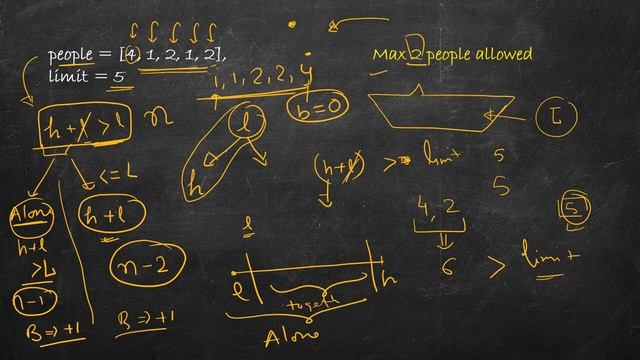 people = [4, 1, 2, 1, 2],
limit = 5
Max 2 people allowed
1, 1, 2, 2, 4
b = 0
h + l > l
n
l
h
L
(h + l) > limit 5
5
<= L
Alone
h + l
h + l
> L
n - 1
n - 2
B => +1
B => +1
4, 2
5
6 > limit
l
l
h
togeth
Alone